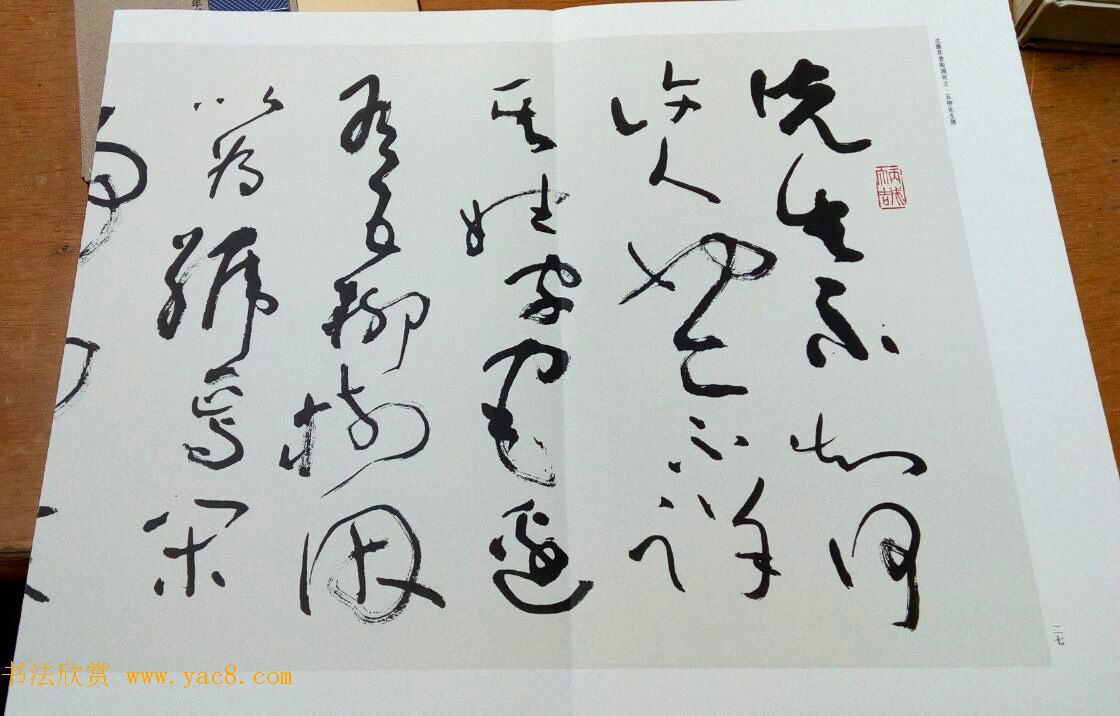 沈鵬草書陶淵明文·五柳先生傳
先生不知何
許人也亦不詳
其姓字宅邊
有五柳樹因
以為號焉閑
二七
书法欣赏 www.yac8.com